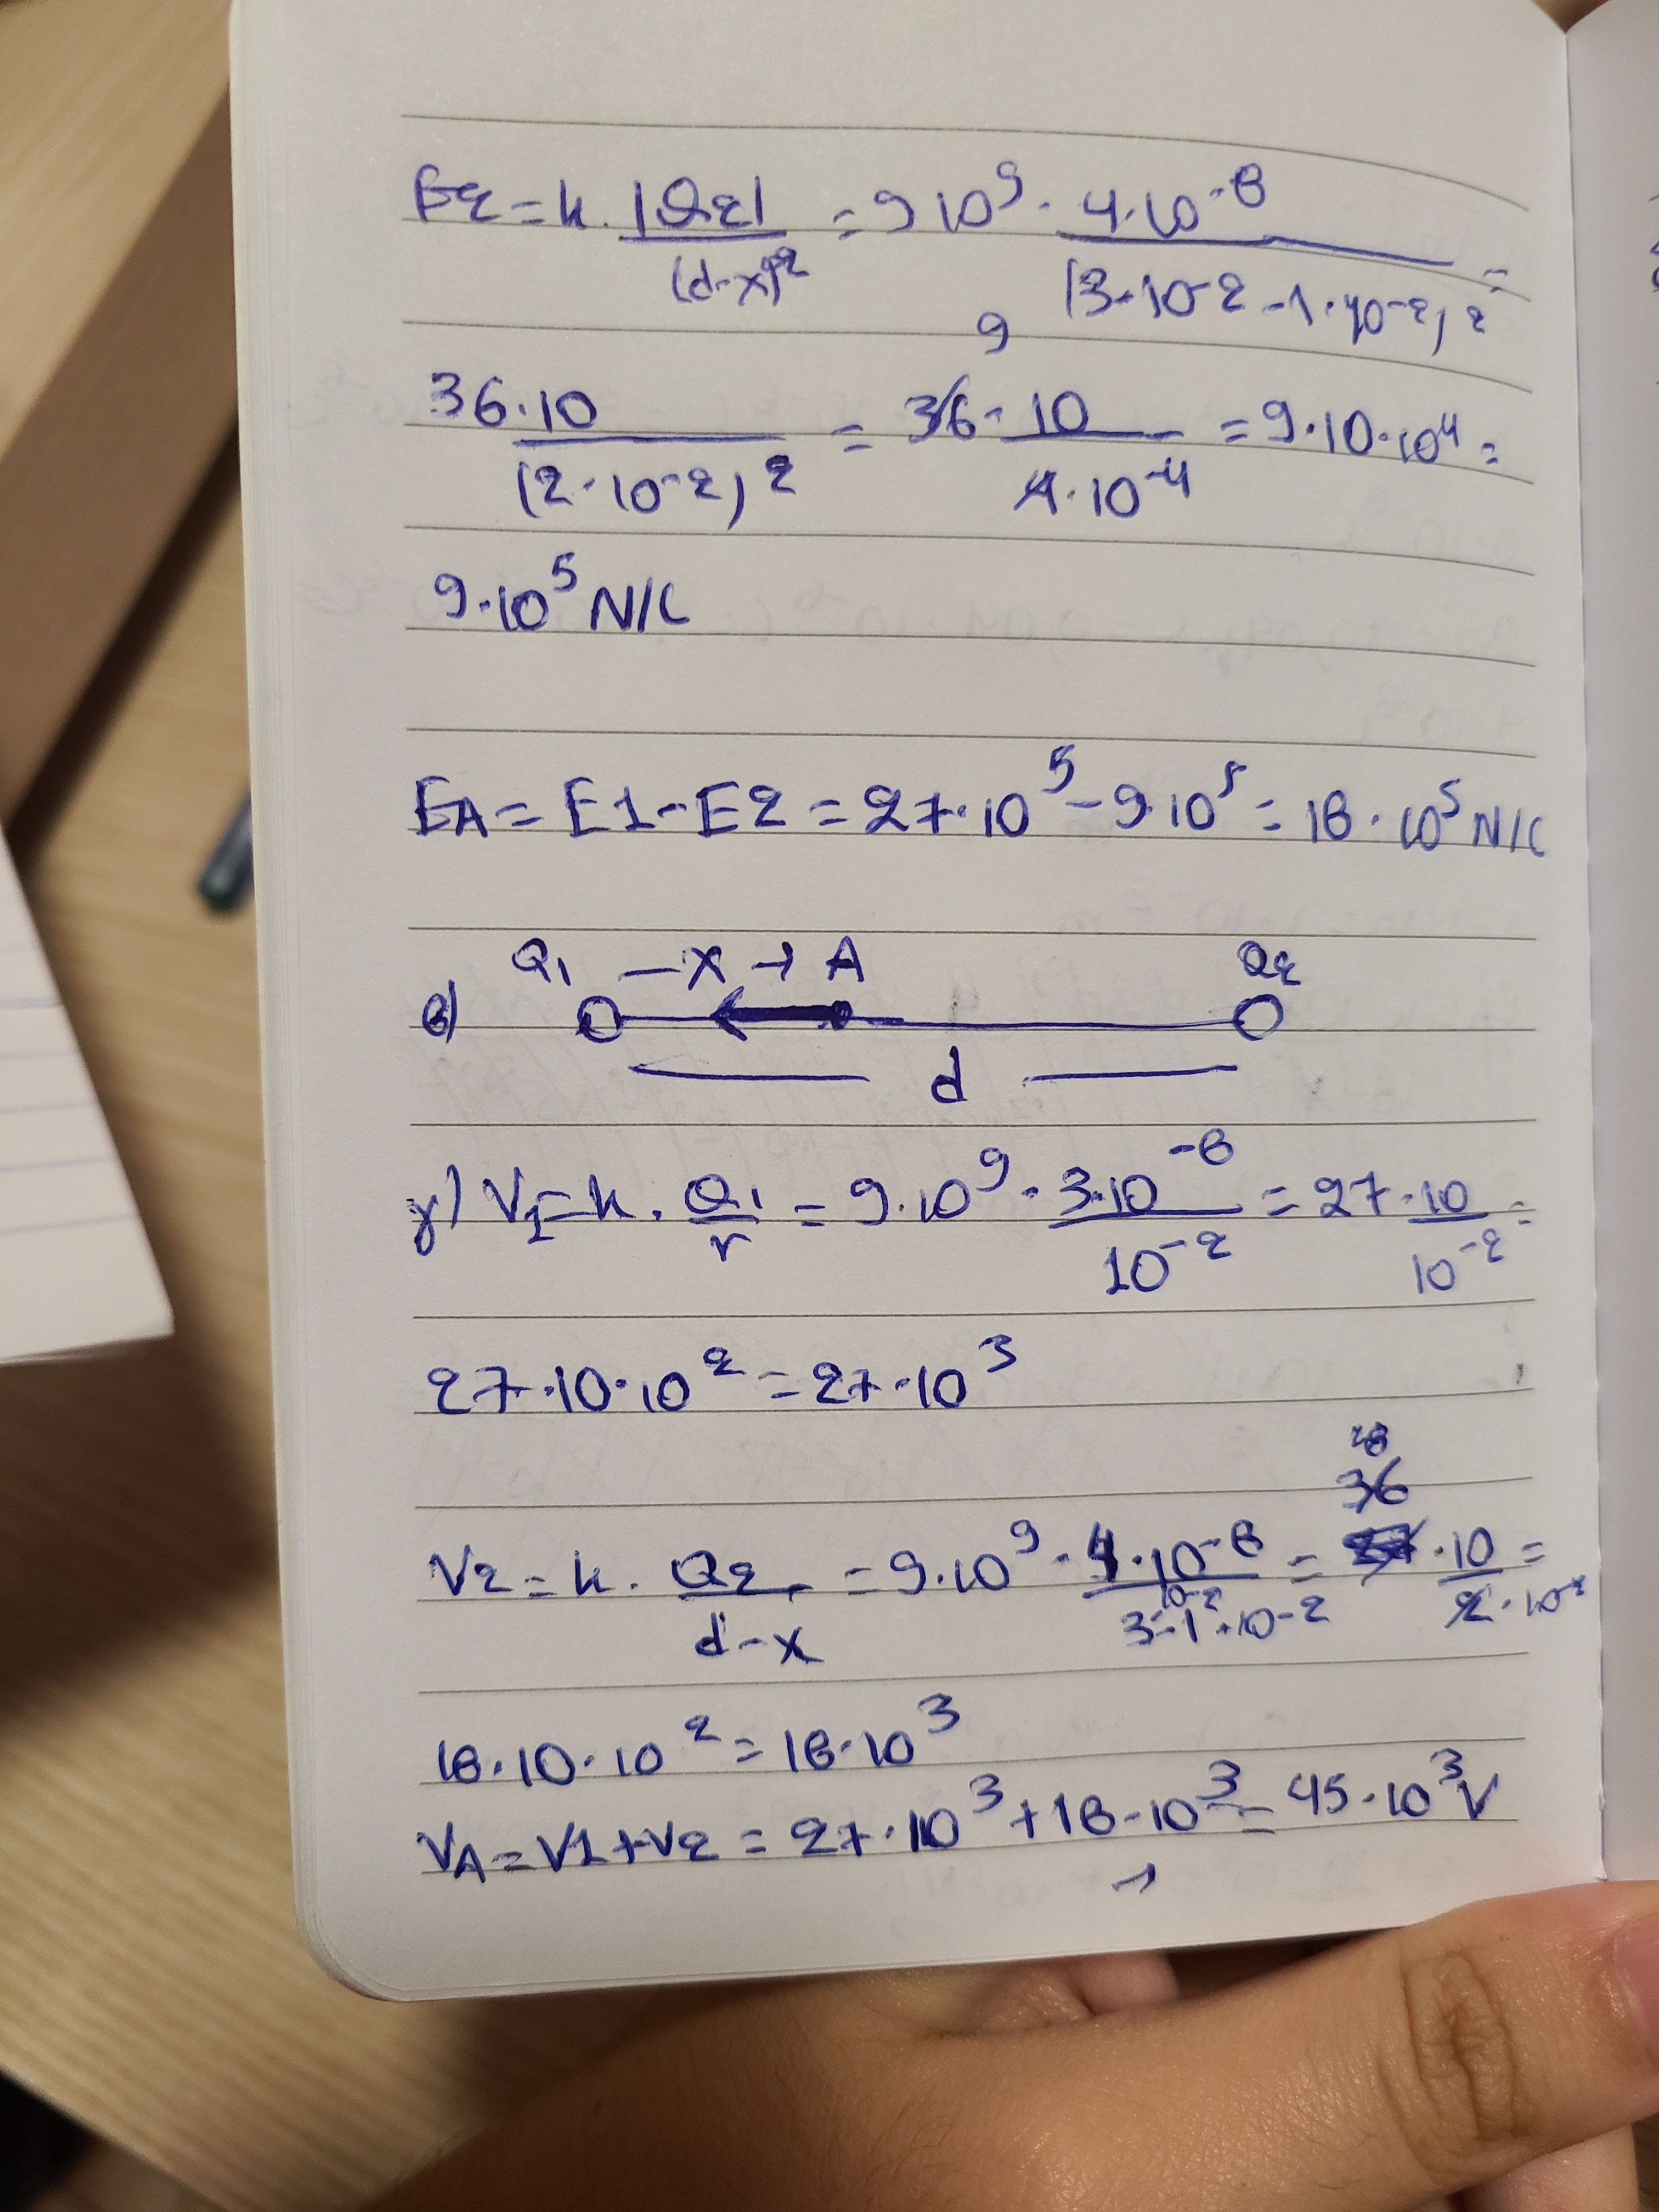 E2 = k · |Q2| / (d-x)² = 9 10⁹ · 4·10⁻⁸ / (3·10⁻² - 1·10⁻²)² =
36·10 / (2·10⁻²)² = 36 · 10 / 4·10⁻⁴ = 9·10·10⁴ =
9
9·10⁵ N/C
EA = E1 - E2 = 27·10⁵ - 9·10⁵ = 18·10⁵ N/C
Q1 — x → A Q2
β)
d
γ) V1 = k · Q1 / r = 9·10⁹ · 3·10⁻⁸ / 10⁻² = 27·10 / 10⁻² =
27·10·10² = 27·10³
18
36
V2 = k · Q2 / d-x = 9·10⁹ · 4·10⁻⁸ / 3·10⁻² - 1·10⁻² = ·10 / 2·10⁻² =
18·10·10² = 18·10³
VA = V1 + V2 = 27·10³ + 18·10³ = 45·10³ V